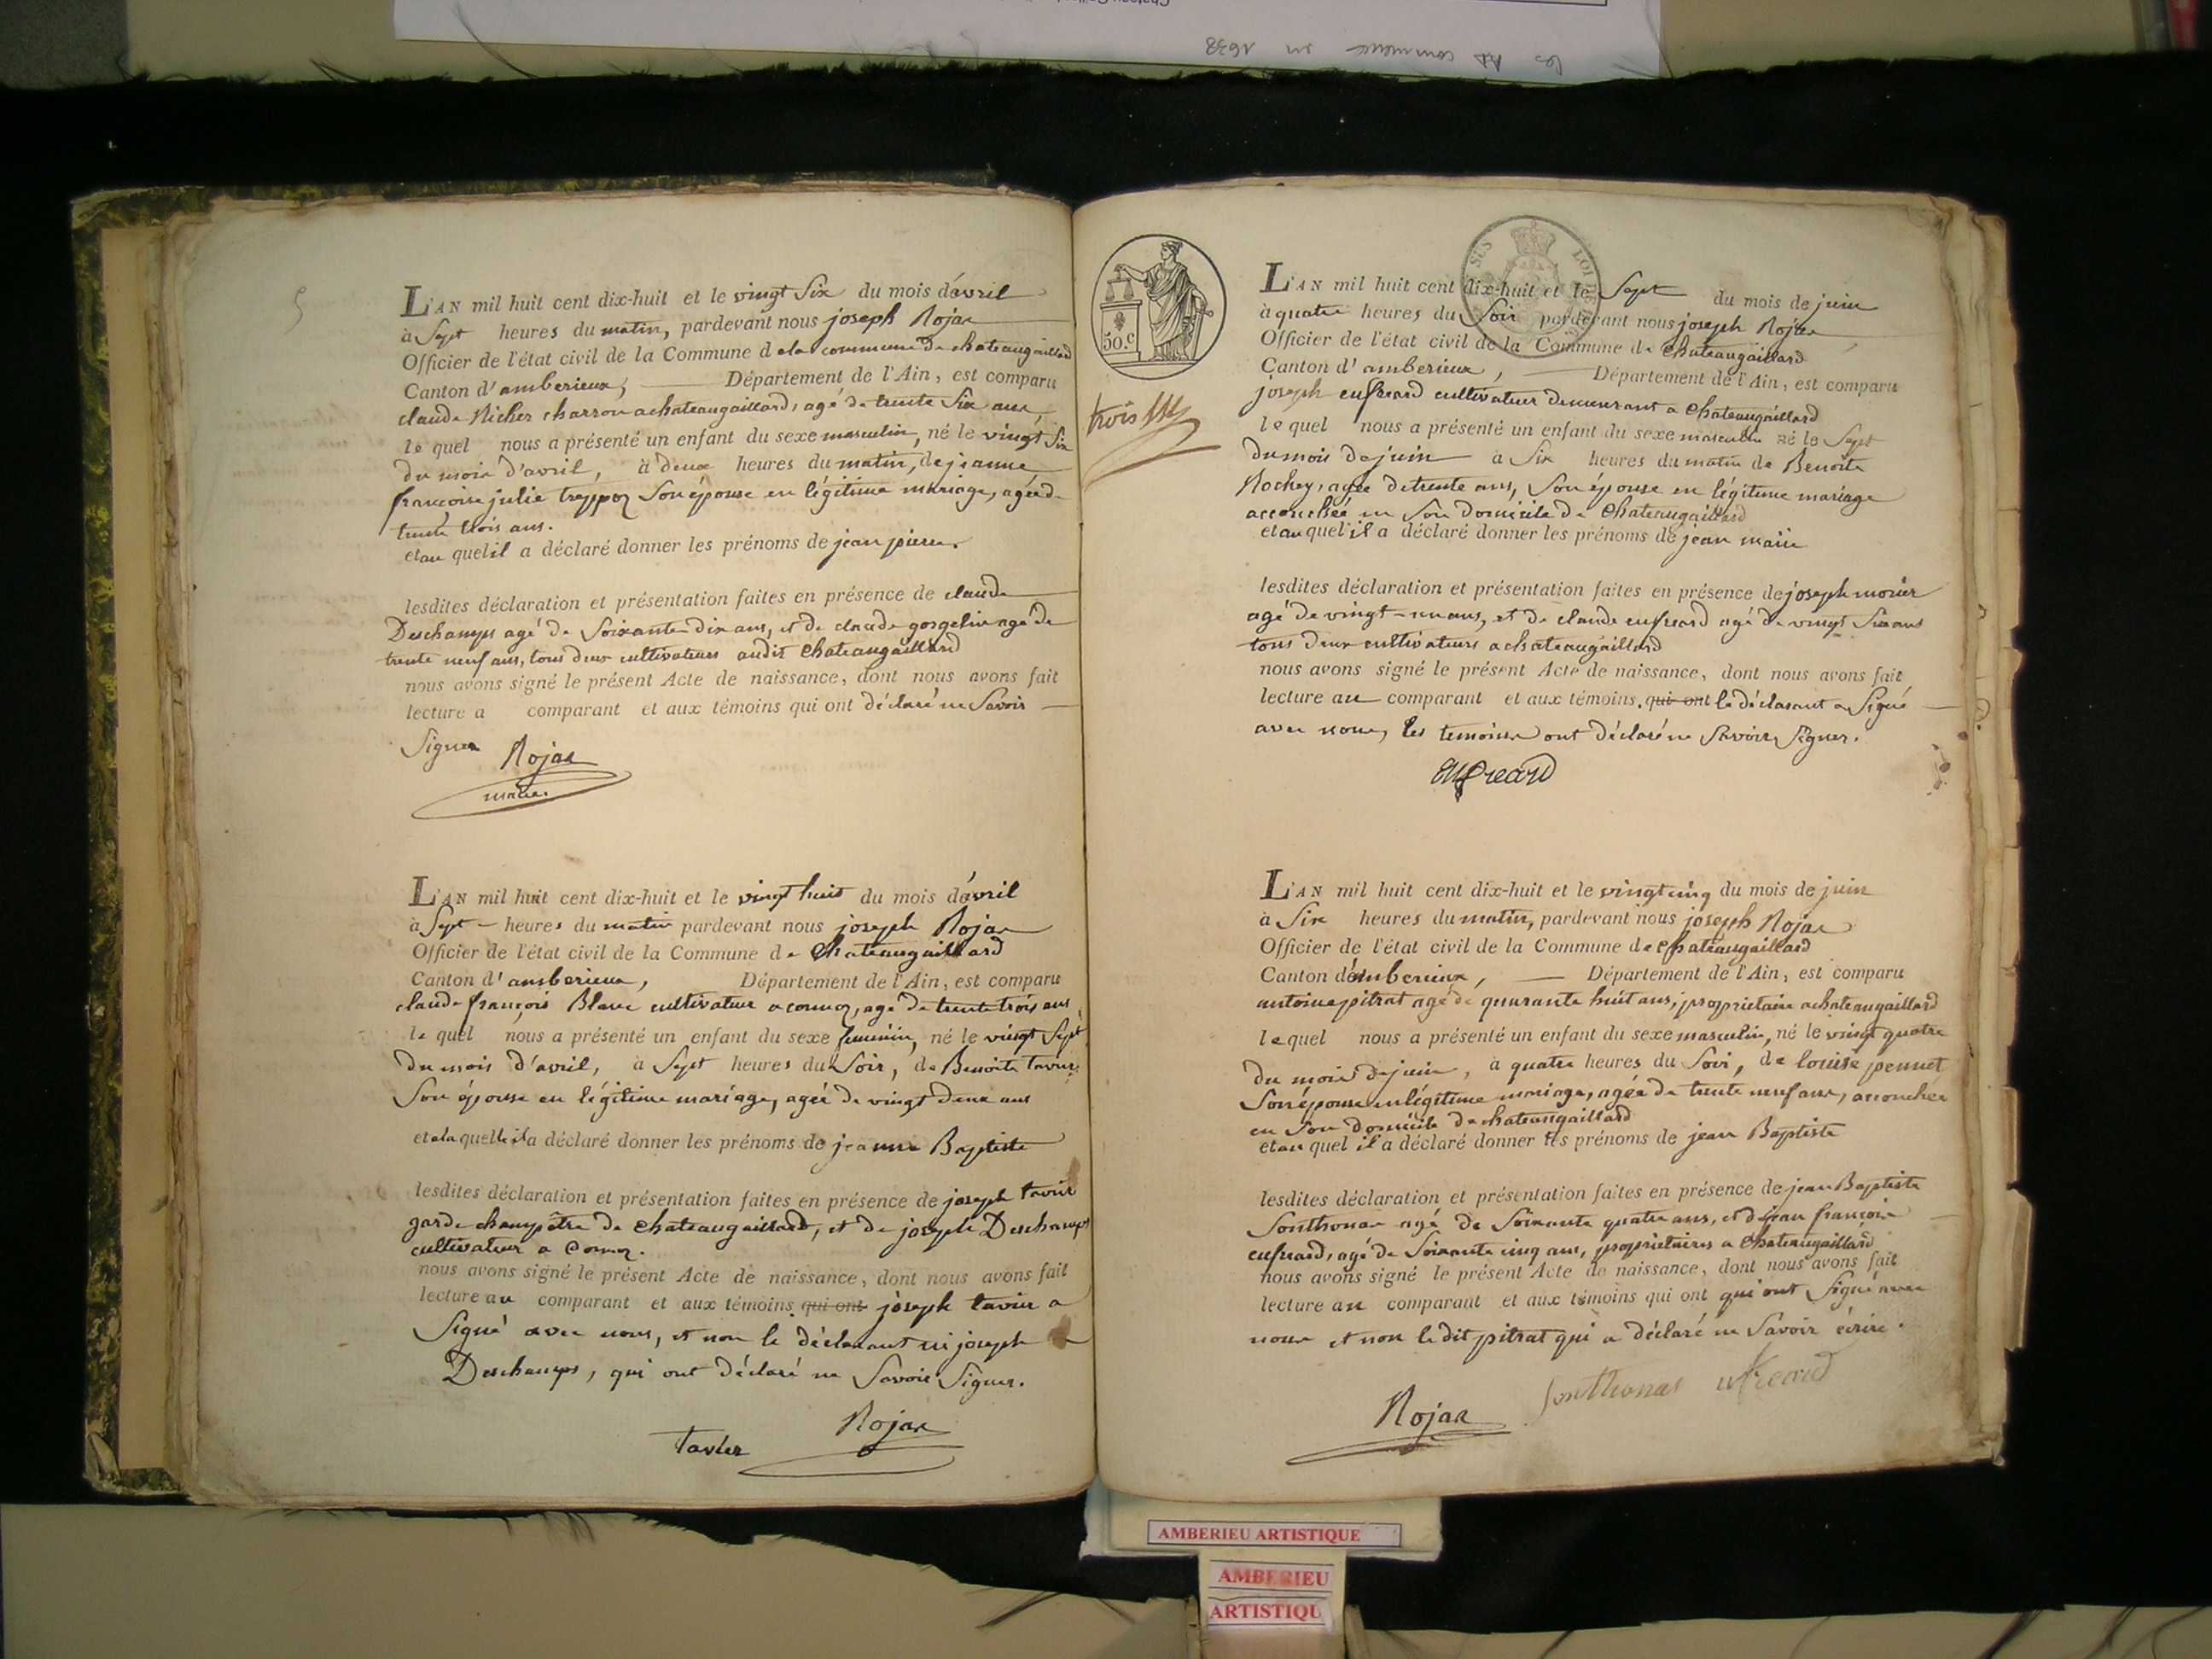 les commence en 1638
L'AN mil huit cent dix-huit et le vingt Six du mois d'avril
à Sept heures du matin, pardevant nous joseph Rojas
Officier de l'état civil de la Commune d ela commune de chateaugaillard
Canton d'amberieux, Département de l'Ain, est comparu
claude Richer charron a chateaugaillard, agé de trente Six ans,
le quel nous a présenté un enfant du sexe masculin, né le vingt Six
du mois d'avril, à deux heures du matin, de jeanne
françoise julie treppoz Son épouse en légitime mariage, agée de
trente trois ans.
et au quel il a déclaré donner les prénoms de jean pierre.
lesdites déclaration et présentation faites en présence de claude
Deschamps agé de Soixante dix ans, et de claude gosgelin agé de
trente neuf ans, tous deux cultivateurs audit Chateaugaillard
nous avons signé le présent Acte de naissance, dont nous avons fait
lecture a comparant et aux témoins qui ont déclaré ne Savoir
Signer Rojas
maire.
L'AN mil huit cent dix-huit et le vingt huit du mois d'avril
à Sept heures du matin pardevant nous joseph Rojas
Officier de l'état civil de la Commune de Chateaugaillard
Canton d'amberieux, Département de l'Ain, est comparu
claude françois Blanc cultivateur a cormoz, agé de trente trois ans
le quel nous a présenté un enfant du sexe feminin, né le vingt Sept
du mois d'avril, à Sept heures du Soir, de Benoite tavier
Son épouse en légitime mariage, agée de vingt deux ans
et a la quelle il a déclaré donner les prénoms de jeanne Baptiste
lesdites déclaration et présentation faites en présence de joseph tavier
garde champêtre de Chateaugaillard, et de joseph Deschamps
cultivateur a Cormoz.
nous avons signé le présent Acte de naissance, dont nous avons fait
lecture au comparant et aux témoins qui ont joseph tavier a
Signé avec nous, et non le déclarant ni joseph
Deschamps, qui ont déclaré ne Savoir Signer.
tavier Rojas
50.c
trois
L'AN mil huit cent dix-huit et le Sept du mois de juin
à quatre heures du Soir pardevant nous joseph Rojas
Officier de l'état civil de la Commune de Chateaugaillard
Canton d'amberieux, Département de l'Ain, est comparu
joseph cufreard cultivateur demeurant a Chateaugaillard
le quel nous a présenté un enfant du sexe masculin né le Sept
du mois de juin à Six heures du matin de Benoite
Rochey, agée de trente ans, Son épouse en légitime mariage
accouchée en Son domicile de Chateaugaillard
et au quel il a déclaré donner les prénoms de jean marie
lesdites déclaration et présentation faites en présence de joseph morier
agé de vingt-un ans, et de claude cufreard agé de vingt Six ans
tous deux cultivateurs a chateaugaillard
nous avons signé le présent Acte de naissance, dont nous avons fait
lecture au comparant et aux témoins. qui ont le déclarant a Signé
avec nous, les temoins ont déclaré ne Savoir Signer.
cufreard
L'AN mil huit cent dix-huit et le vingt cinq du mois de juin
à Six heures du matin, pardevant nous joseph Rojas
Officier de l'état civil de la Commune de chateaugaillard
Canton d'amberieux, Département de l'Ain, est comparu
antoine pitrat agé de quarante huit ans, proprietaire a chateaugaillard
le quel nous a présenté un enfant du sexe masculin, né le vingt quatre
du mois de juin, à quatre heures du Soir, de louise pennet
Son épouse en légitime mariage, agée de trente neuf ans, accouchée
en Son domicile de chateaugaillard
et au quel il a déclaré donner les prénoms de jean Baptiste
lesdites déclaration et présentation faites en présence de jean Baptiste
Sonthonas agé de Soixante quatre ans, et de jean françois
cufreard, agé de Soixante cinq ans, proprietaires a Chateaugaillard
nous avons signé le présent Acte de naissance, dont nous avons fait
lecture au comparant et aux témoins qui ont qui ont Signé avec
nous et non le dit pitrat qui a déclaré ne Savoir écrire.
Rojas Sonthonas cufreard
AMBERIEU ARTISTIQUE
AMBERIEU
ARTISTIQU